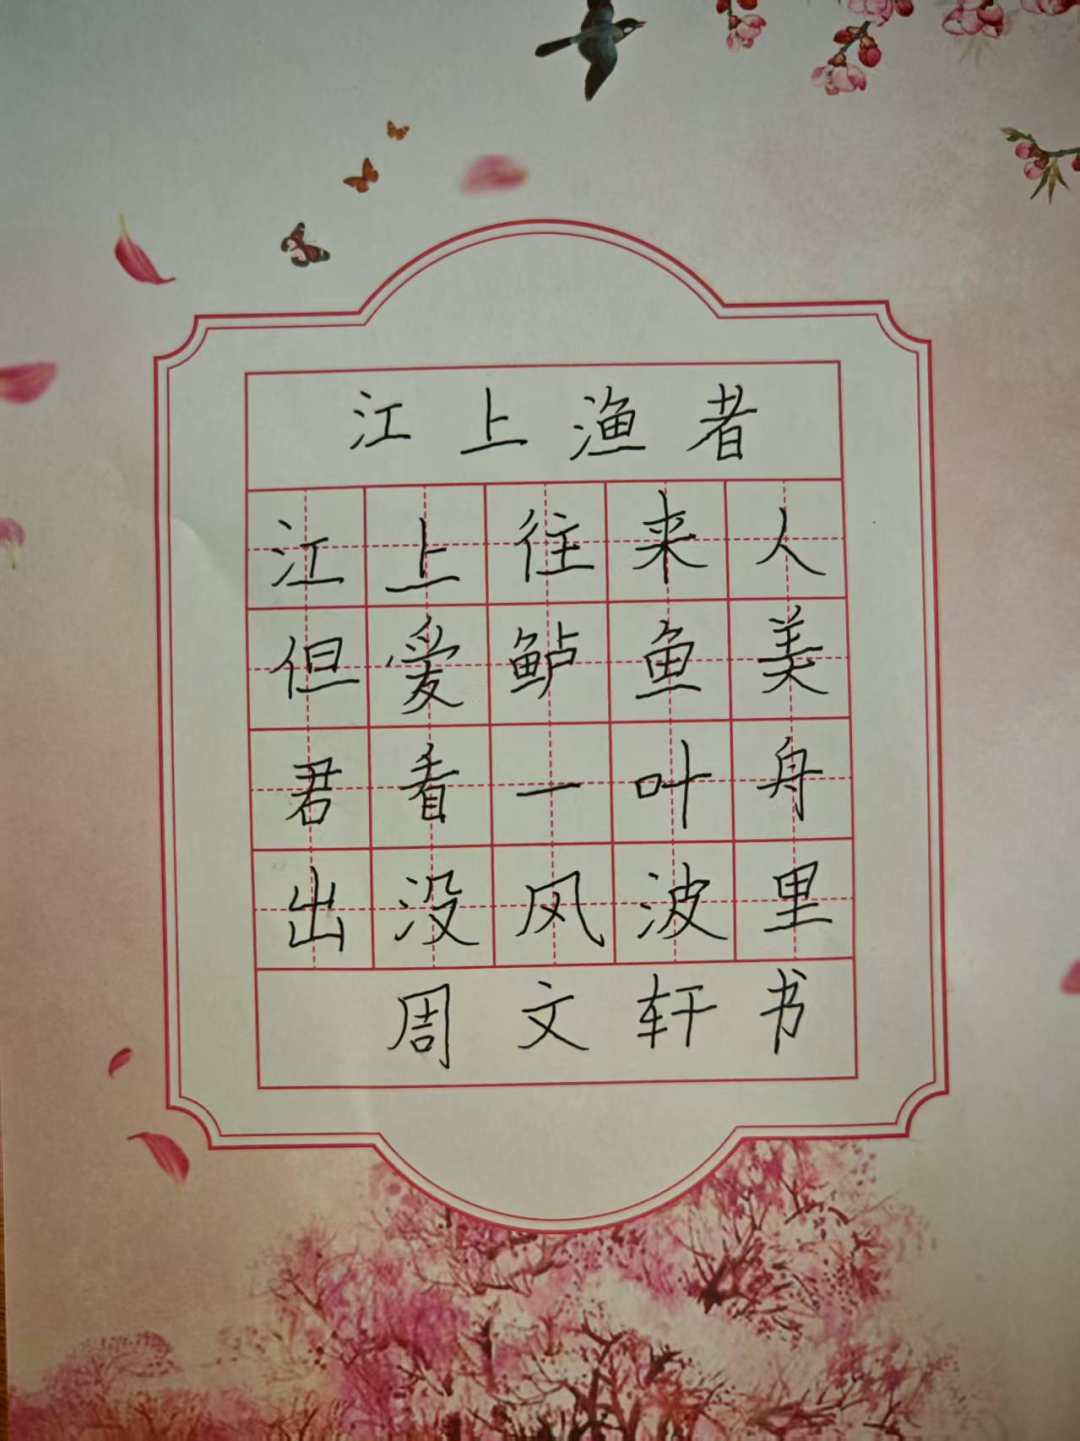 江上渔者
江上往来人
但爱鲈鱼美
君看一叶舟
出没风波里
周文轩书